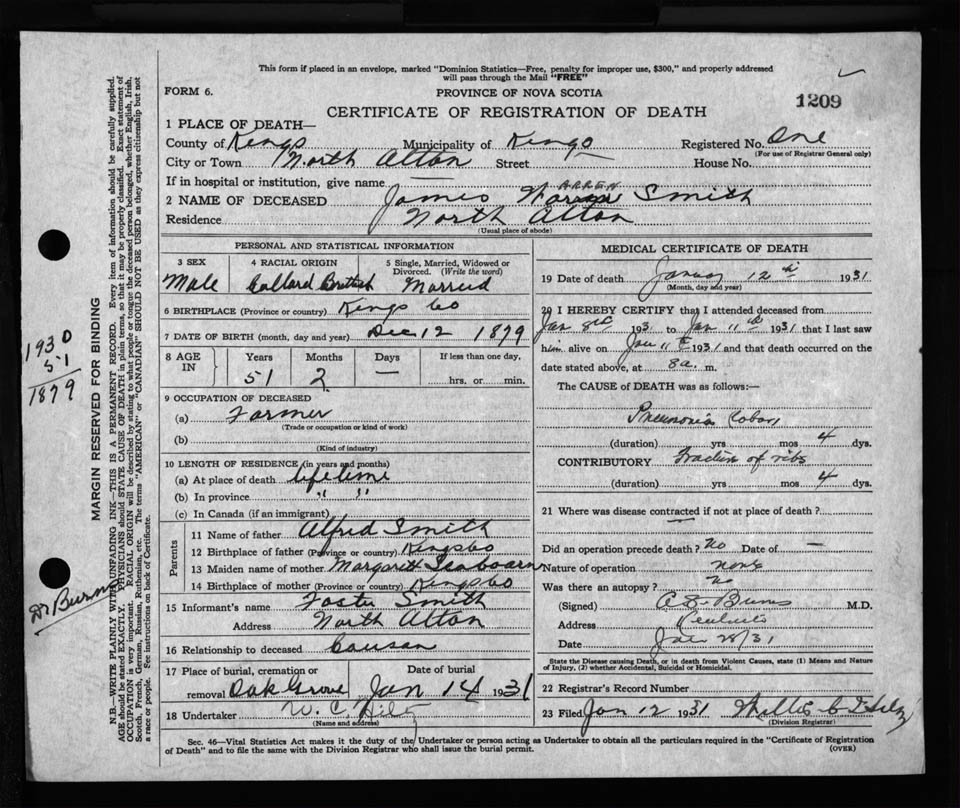 This form if placed in an envelope, marked "Dominion Statistics—Free, penalty for improper use, $300," and properly addressed
will pass through the Mail "FREE"
FORM 6.
PROVINCE OF NOVA SCOTIA
1209
CERTIFICATE OF REGISTRATION OF DEATH
1 PLACE OF DEATH—
County of Kings Municipality of Kings Registered No. One
(For use of Registrar General only)
City or Town North Alton Street House No.
If in hospital or institution, give name
ARREN
2 NAME OF DECEASED James Warren Smith
Residence North Alton
(Usual place of abode)
PERSONAL AND STATISTICAL INFORMATION
3 SEX
Male
4 RACIAL ORIGIN
Collard British
5 Single, Married, Widowed or
Divorced. (Write the word)
Married
6 BIRTHPLACE (Province or country) Kings Co
7 DATE OF BIRTH (month, day and year) Dec 12 1879
8 AGE
IN
Years Months Days If less than one day,
51 2 — hrs. or min.
9 OCCUPATION OF DECEASED
(a) Farmer
(Trade or occupation or kind of work)
(b)
(Kind of industry)
10 LENGTH OF RESIDENCE (in years and months)
(a) At place of death lifetime
(b) In province " "
(c) In Canada (if an immigrant)
Parents
11 Name of father Alfred Smith
12 Birthplace of father (Province or country) Kingsco
13 Maiden name of mother Margaret Seaboarn
14 Birthplace of mother (Province or country) Kingsco
15 Informant's name Foster Smith
Address North Alton
16 Relationship to deceased Cousan
17 Place of burial, cremation or
removal Oak Grove
Date of burial
Jan 14 1931
18 Undertaker W. C. Hiltz
(Name and address)
MEDICAL CERTIFICATE OF DEATH
19 Date of death January 12th 1931
(Month, day and year)
20 I HEREBY CERTIFY that I attended deceased from
Jan 8th 1931 to Jan 11th 1931 that I last saw
him alive on Jan 11th 1931 and that death occurred on the
date stated above, at 8 a. m.
The CAUSE of DEATH was as follows:—
Pneumonia Lobar
(duration) yrs mos 4 dys.
CONTRIBUTORY Fracture of ribs
(duration) yrs mos 4 dys.
21 Where was disease contracted if not at place of death?
Did an operation precede death? No Date of —
Nature of operation none
Was there an autopsy? No
(Signed) Burns M.D.
Address
Date Jan 28/31
State the Disease causing Death, or in death from Violent Causes, state (1) Means and Nature
of Injury, (2) whether Accidental, Suicidal or Homicidal.
22 Registrar's Record Number
23 Filed Jan 12 1931
(Division Registrar)
Sec. 46—Vital Statistics Act makes it the duty of the Undertaker or person acting as Undertaker to obtain all the particulars required in the "Certificate of Registration
of Death" and to file the same with the Division Registrar who shall issue the burial permit.
(OVER)
1930
51
1879
Dr Burns
MARGIN RESERVED FOR BINDING
N.B.—WRITE PLAINLY WITH UNFADING INK—THIS IS A PERMANENT RECORD. Every item of information should be carefully supplied.
AGE should be stated EXACTLY. PHYSICIANS should STATE CAUSE OF DEATH in plain terms, so that it may be properly classified. Exact statement of
OCCUPATION is very important. RACIAL ORIGIN will be described by stating to what people or tongue the deceased person belonged, whether English, Irish,
Scotch, French, German, Russian, Ruthenian, etc. The terms "AMERICAN" or "CANADIAN" SHOULD NOT BE USED as they express citizenship but not
a race or people. See instructions on back of Certificate.